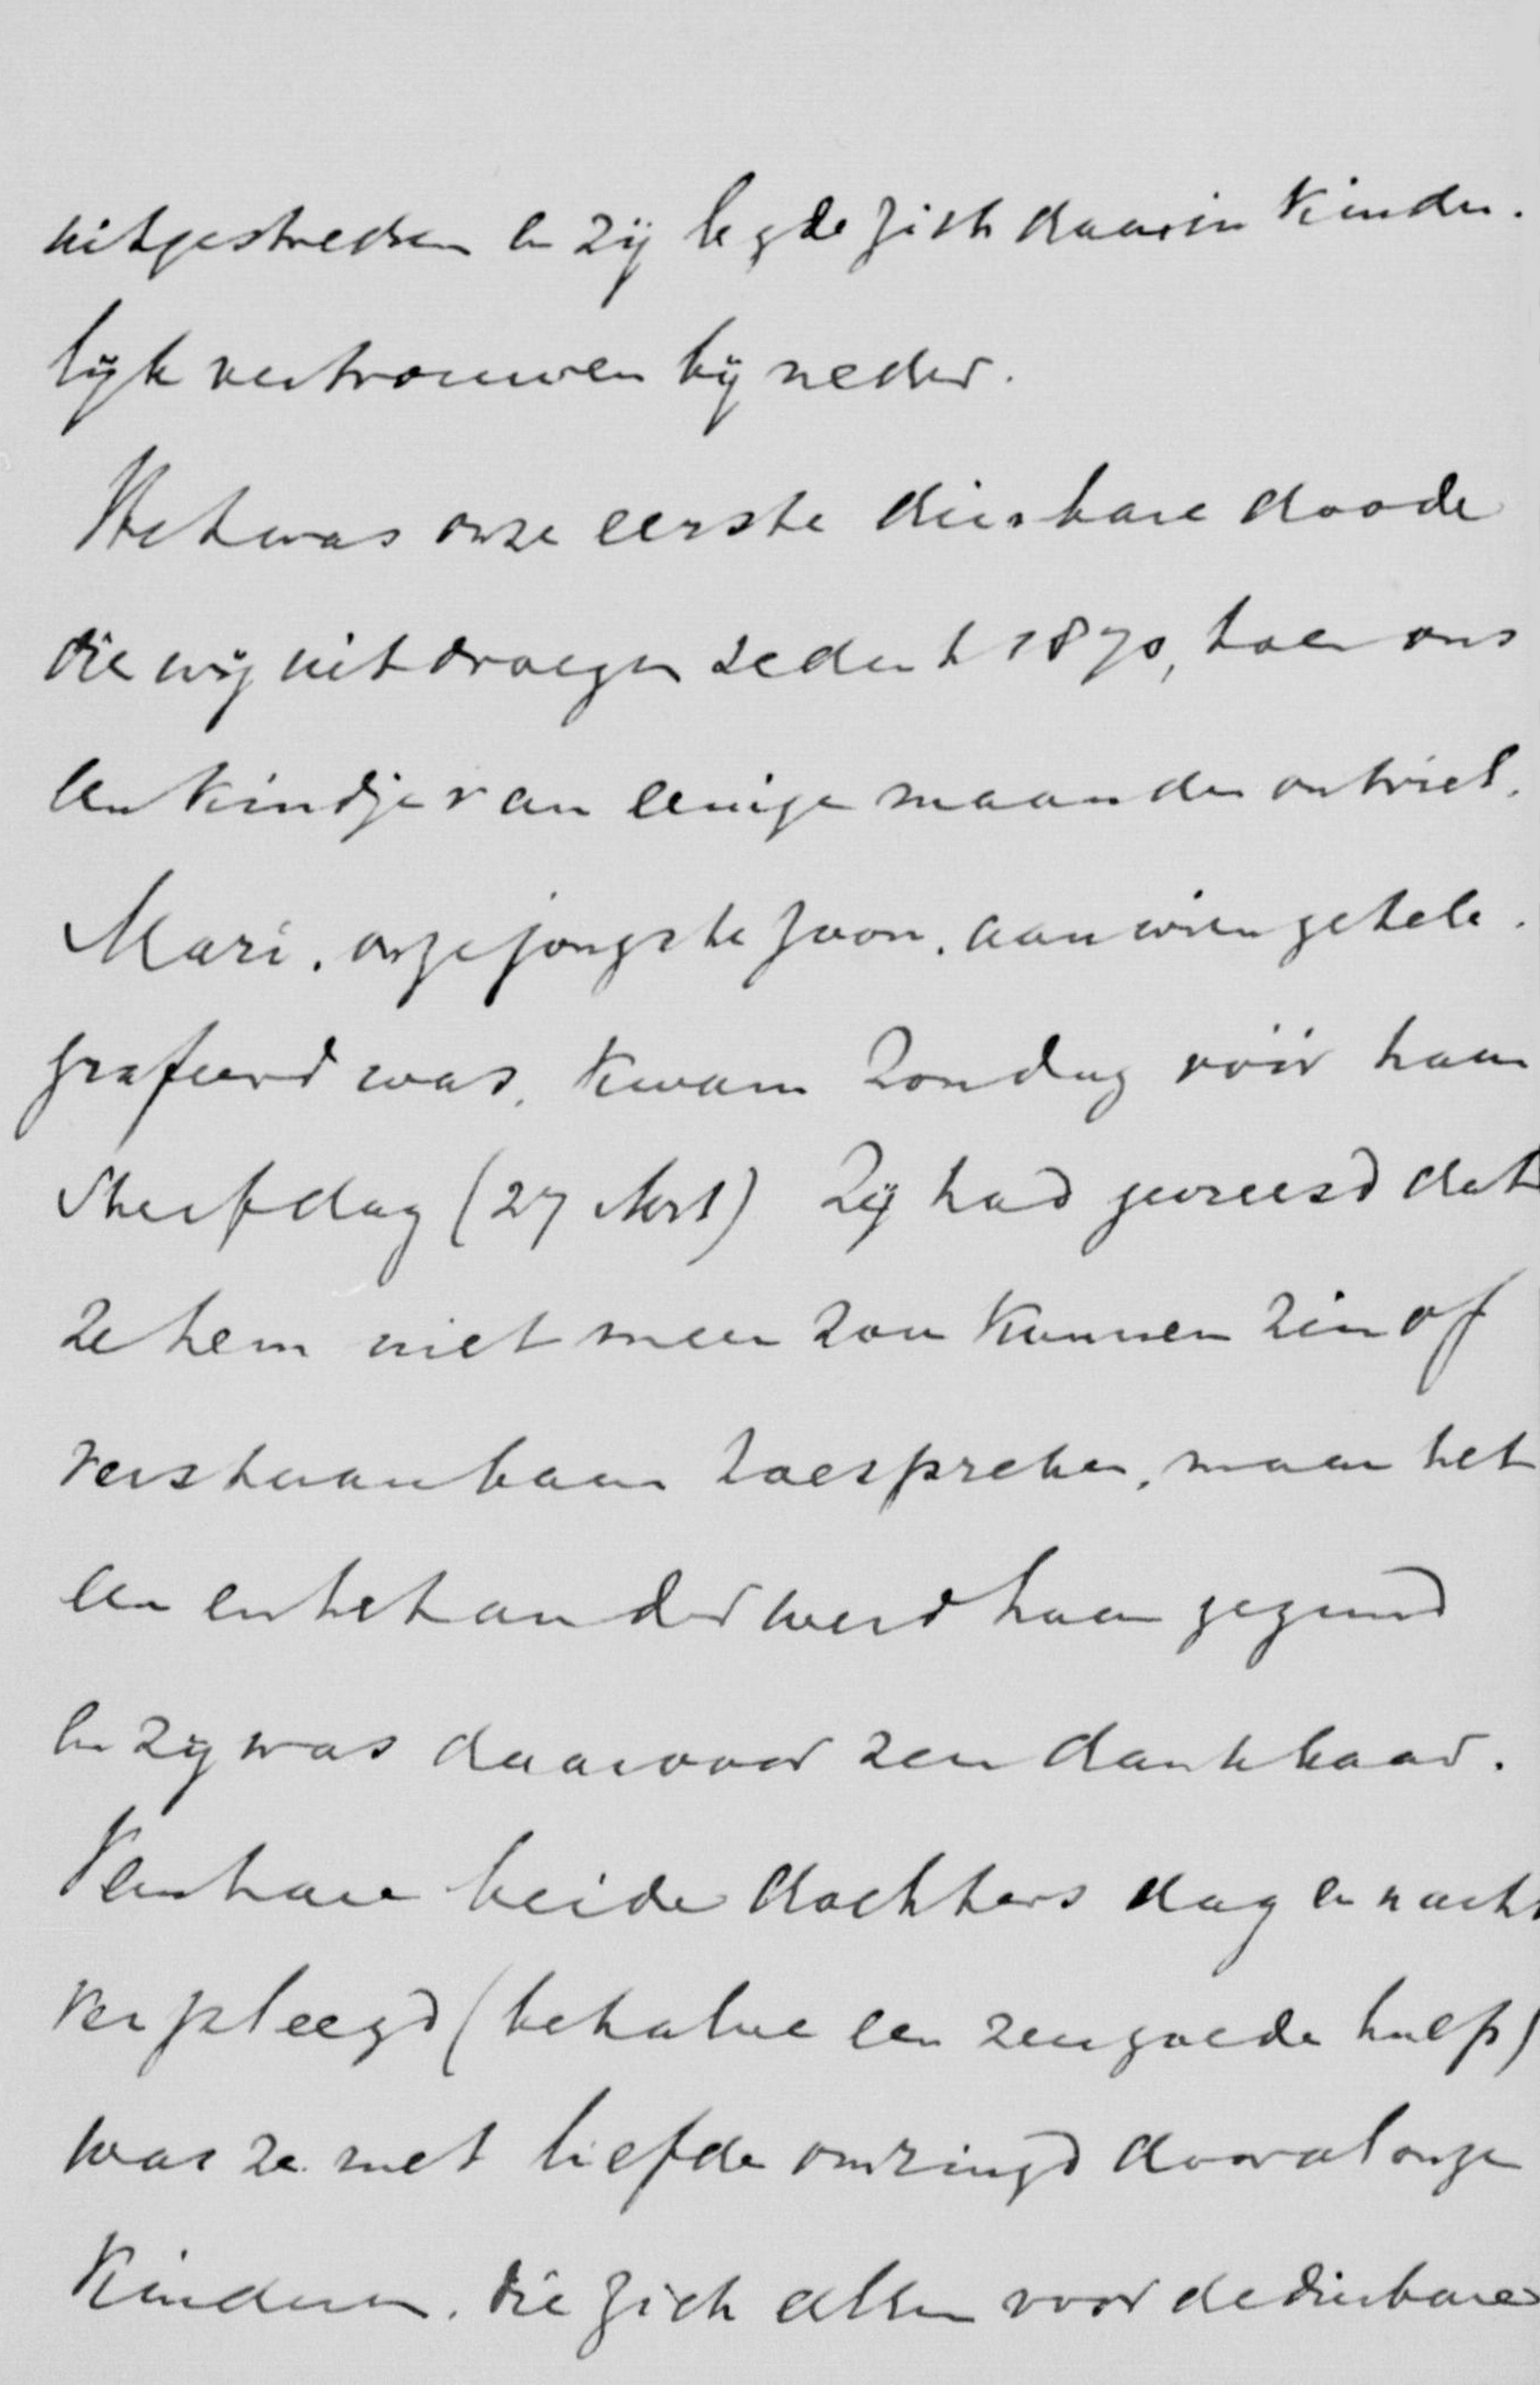 uitgestrekt en zij legde zich daarin kinder-
lijk vertrouwen bij neder.
Het was onze eerste dierbare doode
die wij uitdroegen sedert 1870, toen ons
een kindje van eenige maanden ontviel.
Mari, onze jongste zoon, aan wien getele-
grafeerd was, kwam Zondag vóór haar
Sterfdag (27 Mrt) Zij had gevreesd dat
ze hem niet meer zou kunnen zien of
verstaanbaar toespreken, maar het
een en het ander werd haar gegund
en zij was daarvoor zeer dankbaar.
hare beide dochters dag en nacht
verpleegd (behalve een zeer goede hulp)
was ze met liefde omringd door al onze
Kinderen, die zich allen voor de dierbare